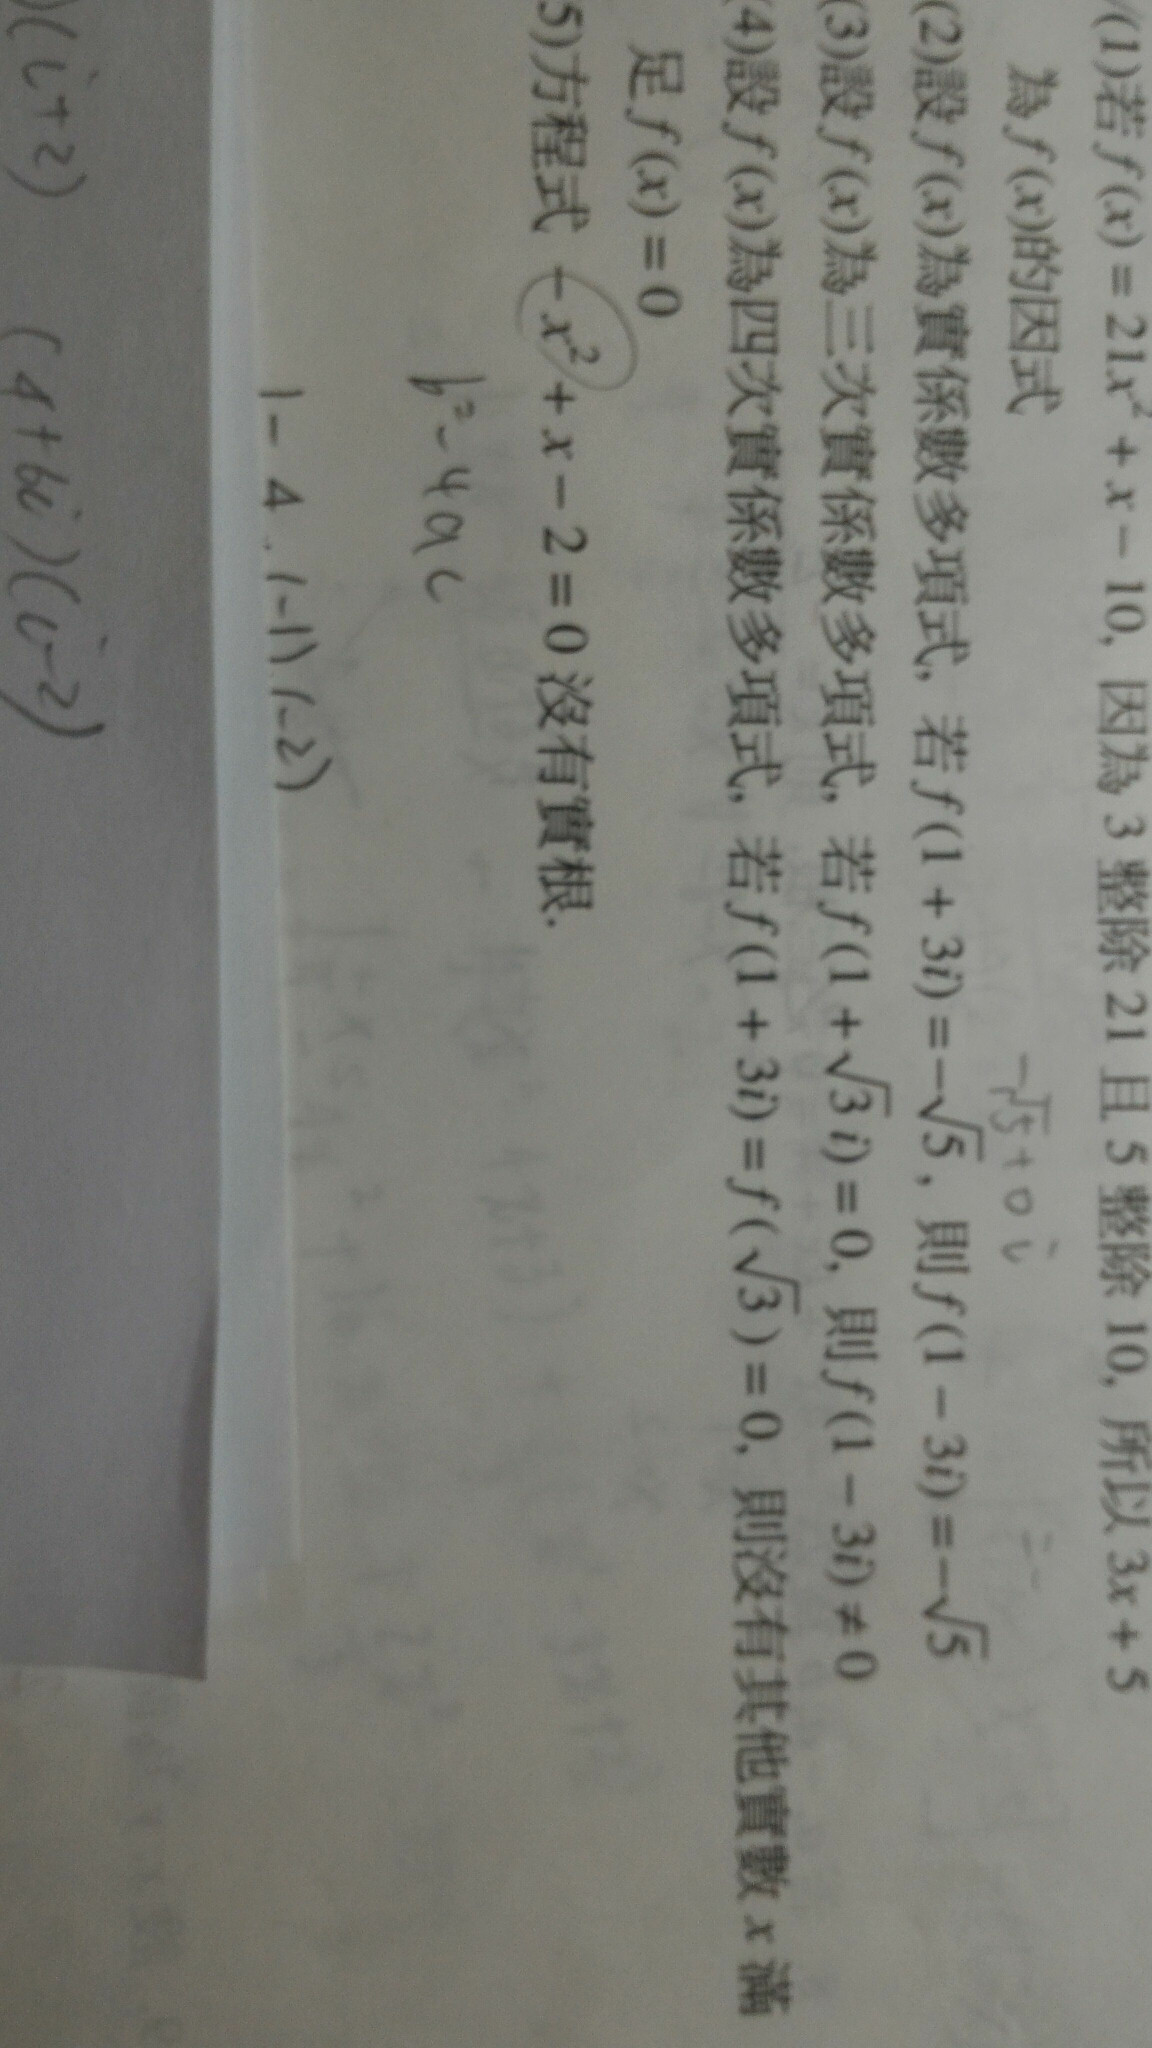 (1)若 f(x) = 21x² + x − 10, 因為 3 整除 21 且 5 整除 10, 所以 3x + 5
為 f(x)的因式
−√5 + 0i
(2)設 f(x)為實係數多項式, 若 f(1 + 3i) = −√5, 則 f(1 − 3i) = −√5
(3)設 f(x)為三次實係數多項式, 若 f(1 + √3 i) = 0, 則 f(1 − 3i) ≠ 0
(4)設 f(x)為四次實係數多項式, 若 f(1 + 3i) = f(√3) = 0, 則沒有其他實數 x 滿
足 f(x) = 0
5)方程式 −x² + x − 2 = 0 沒有實根.
b² − 4ac
1 − 4 · (−1) (−2)
)(i+2) (4+bi)(i−2)